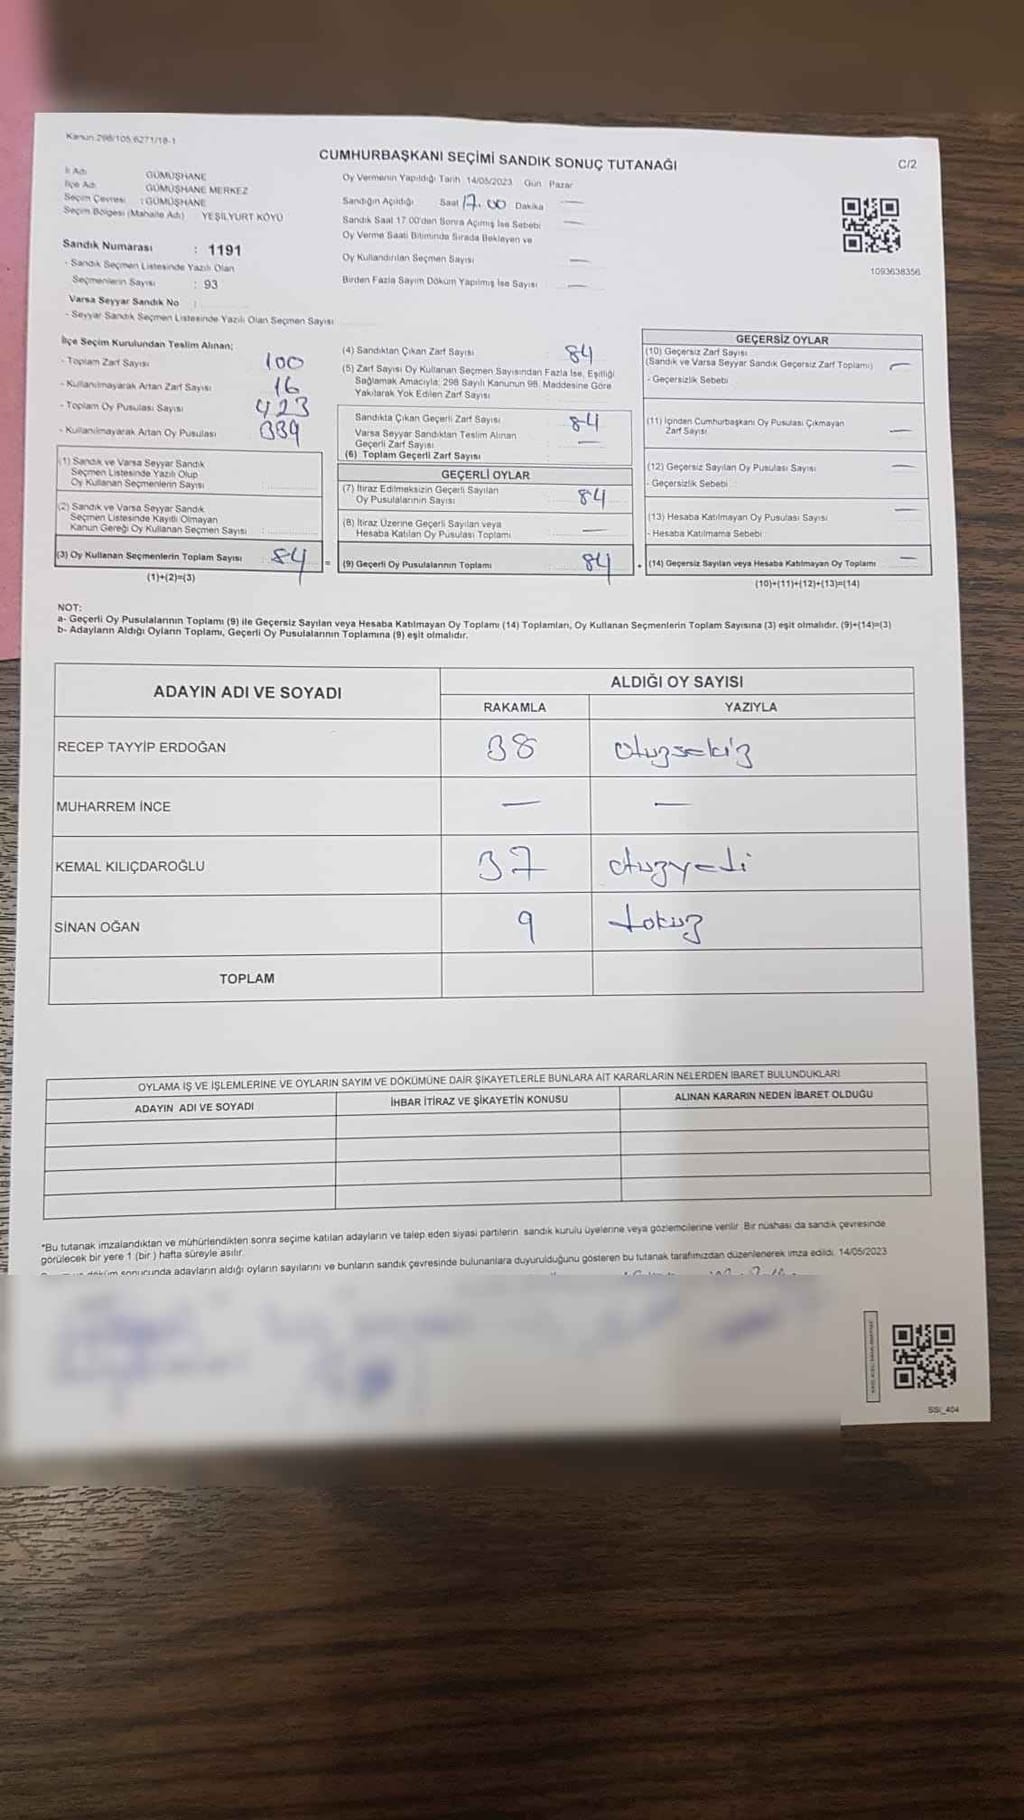 Kanun 298/105,6271/18-1
CUMHURBAŞKANI SEÇİMİ SANDIK SONUÇ TUTANAĞI
C/2
İl Adı GÜMÜŞHANE
İlçe Adı GÜMÜŞHANE MERKEZ
Seçim Çevresi : GÜMÜŞHANE
Seçim Bölgesi (Mahalle Adı) YEŞİLYURT KÖYÜ
Sandık Numarası : 1191
- Sandık Seçmen Listesinde Yazılı Olan
Seçmenlerin Sayısı : 93
Varsa Seyyar Sandık No :
- Seyyar Sandık Seçmen Listesinde Yazılı Olan Seçmen Sayısı
Oy Vermenin Yapıldığı Tarih 14/05/2023 Gün : Pazar
Sandığın Açıldığı Saat 17.00 Dakika —
Sandık Saat 17.00'dan Sonra Açılmış İse Sebebi —
Oy Verme Saati Bitiminde Sırada Bekleyen ve
Oy Kullandırılan Seçmen Sayısı —
Birden Fazla Sayım Döküm Yapılmış İse Sayısı —
1093638356
İlçe Seçim Kurulundan Teslim Alınan;
- Toplam Zarf Sayısı 100
- Kullanılmayarak Artan Zarf Sayısı 16
- Toplam Oy Pusulası Sayısı 423
- Kullanılmayarak Artan Oy Pusulası 339
(1) Sandık ve Varsa Seyyar Sandık
Seçmen Listesinde Yazılı Olup
Oy Kullanan Seçmenlerin Sayısı
(2) Sandık ve Varsa Seyyar Sandık
Seçmen Listesinde Kayıtlı Olmayan
Kanun Gereği Oy Kullanan Seçmen Sayısı
(3) Oy Kullanan Seçmenlerin Toplam Sayısı 84 =
(1)+(2)=(3)
(4) Sandıktan Çıkan Zarf Sayısı 84
(5) Zarf Sayısı Oy Kullanan Seçmen Sayısından Fazla İse, Eşitliği
Sağlamak Amacıyla; 298 Sayılı Kanunun 98. Maddesine Göre
Yakılarak Yok Edilen Zarf Sayısı
Sandıkta Çıkan Geçerli Zarf Sayısı 84
Varsa Seyyar Sandıktan Teslim Alınan
Geçerli Zarf Sayısı —
(6) Toplam Geçerli Zarf Sayısı
GEÇERLİ OYLAR
(7) İtiraz Edilmeksizin Geçerli Sayılan
Oy Pusulalarının Sayısı 84
(8) İtiraz Üzerine Geçerli Sayılan veya
Hesaba Katılan Oy Pusulası Toplamı —
(9) Geçerli Oy Pusulalarının Toplamı 84 +
GEÇERSİZ OYLAR
(10) Geçersiz Zarf Sayısı
(Sandık ve Varsa Seyyar Sandık Geçersiz Zarf Toplamı) —
- Geçersizlik Sebebi
(11) İçinden Cumhurbaşkanı Oy Pusulası Çıkmayan
Zarf Sayısı —
(12) Geçersiz Sayılan Oy Pusulası Sayısı —
- Geçersizlik Sebebi
(13) Hesaba Katılmayan Oy Pusulası Sayısı —
- Hesaba Katılmama Sebebi
(14) Geçersiz Sayılan veya Hesaba Katılmayan Oy Toplamı —
(10)+(11)+(12)+(13)=(14)
NOT:
a- Geçerli Oy Pusulalarının Toplamı (9) ile Geçersiz Sayılan veya Hesaba Katılmayan Oy Toplamı (14) Toplamları, Oy Kullanan Seçmenlerin Toplam Sayısına (3) eşit olmalıdır. (9)+(14)=(3)
b- Adayların Aldığı Oyların Toplamı, Geçerli Oy Pusulalarının Toplamına (9) eşit olmalıdır.
ADAYIN ADI VE SOYADI
ALDIĞI OY SAYISI
RAKAMLA YAZIYLA
RECEP TAYYİP ERDOĞAN 38 otuzsekiz
MUHARREM İNCE — —
KEMAL KILIÇDAROĞLU 37 otuzyedi
SİNAN OĞAN 9 dokuz
TOPLAM
OYLAMA İŞ VE İŞLEMLERİNE VE OYLARIN SAYIM VE DÖKÜMÜNE DAİR ŞİKAYETLERLE BUNLARA AİT KARARLARIN NELERDEN İBARET BULUNDUKLARI
ADAYIN ADI VE SOYADI İHBAR İTİRAZ VE ŞİKAYETİN KONUSU ALINAN KARARIN NEDEN İBARET OLDUĞU
*Bu tutanak imzalandıktan ve mühürlendikten sonra seçime katılan adayların ve talep eden siyasi partilerin sandık kurulu üyelerine veya gözlemcilerine verilir. Bir nüshası da sandık çevresinde
görülecek bir yere 1 (bir) hafta süreyle asılır.
sonucunda adayların aldığı oyların sayılarını ve bunların sandık çevresinde bulunanlara duyurulduğunu gösteren bu tutanak tarafımızdan düzenlenerek imza edildi. 14/05/2023
SSI_404